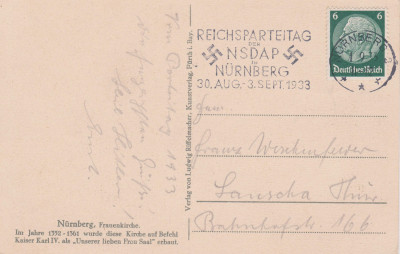 Vom Parteitag 1933
Heil Hitler!
Ernst.
Nürnberg, Frauenkirche.
Im Jahre 1352-1361 wurde diese Kirche auf Befehl
Kaiser Karl IV. als „Unserer lieben Frau Saal" erbaut.
Verlag von Ludwig Riffelmacher, Kunstverlag, Fürth i. Bay.
REICHSPARTEITAG
DER
NSDAP
IN
NÜRNBERG
30. AUG.-3. SEPT. 1933
NÜRNBERG 2
6 6
Deutsches Reich
Fam.
Franz
Lauscha Thür.
Bahnhofstr. 166